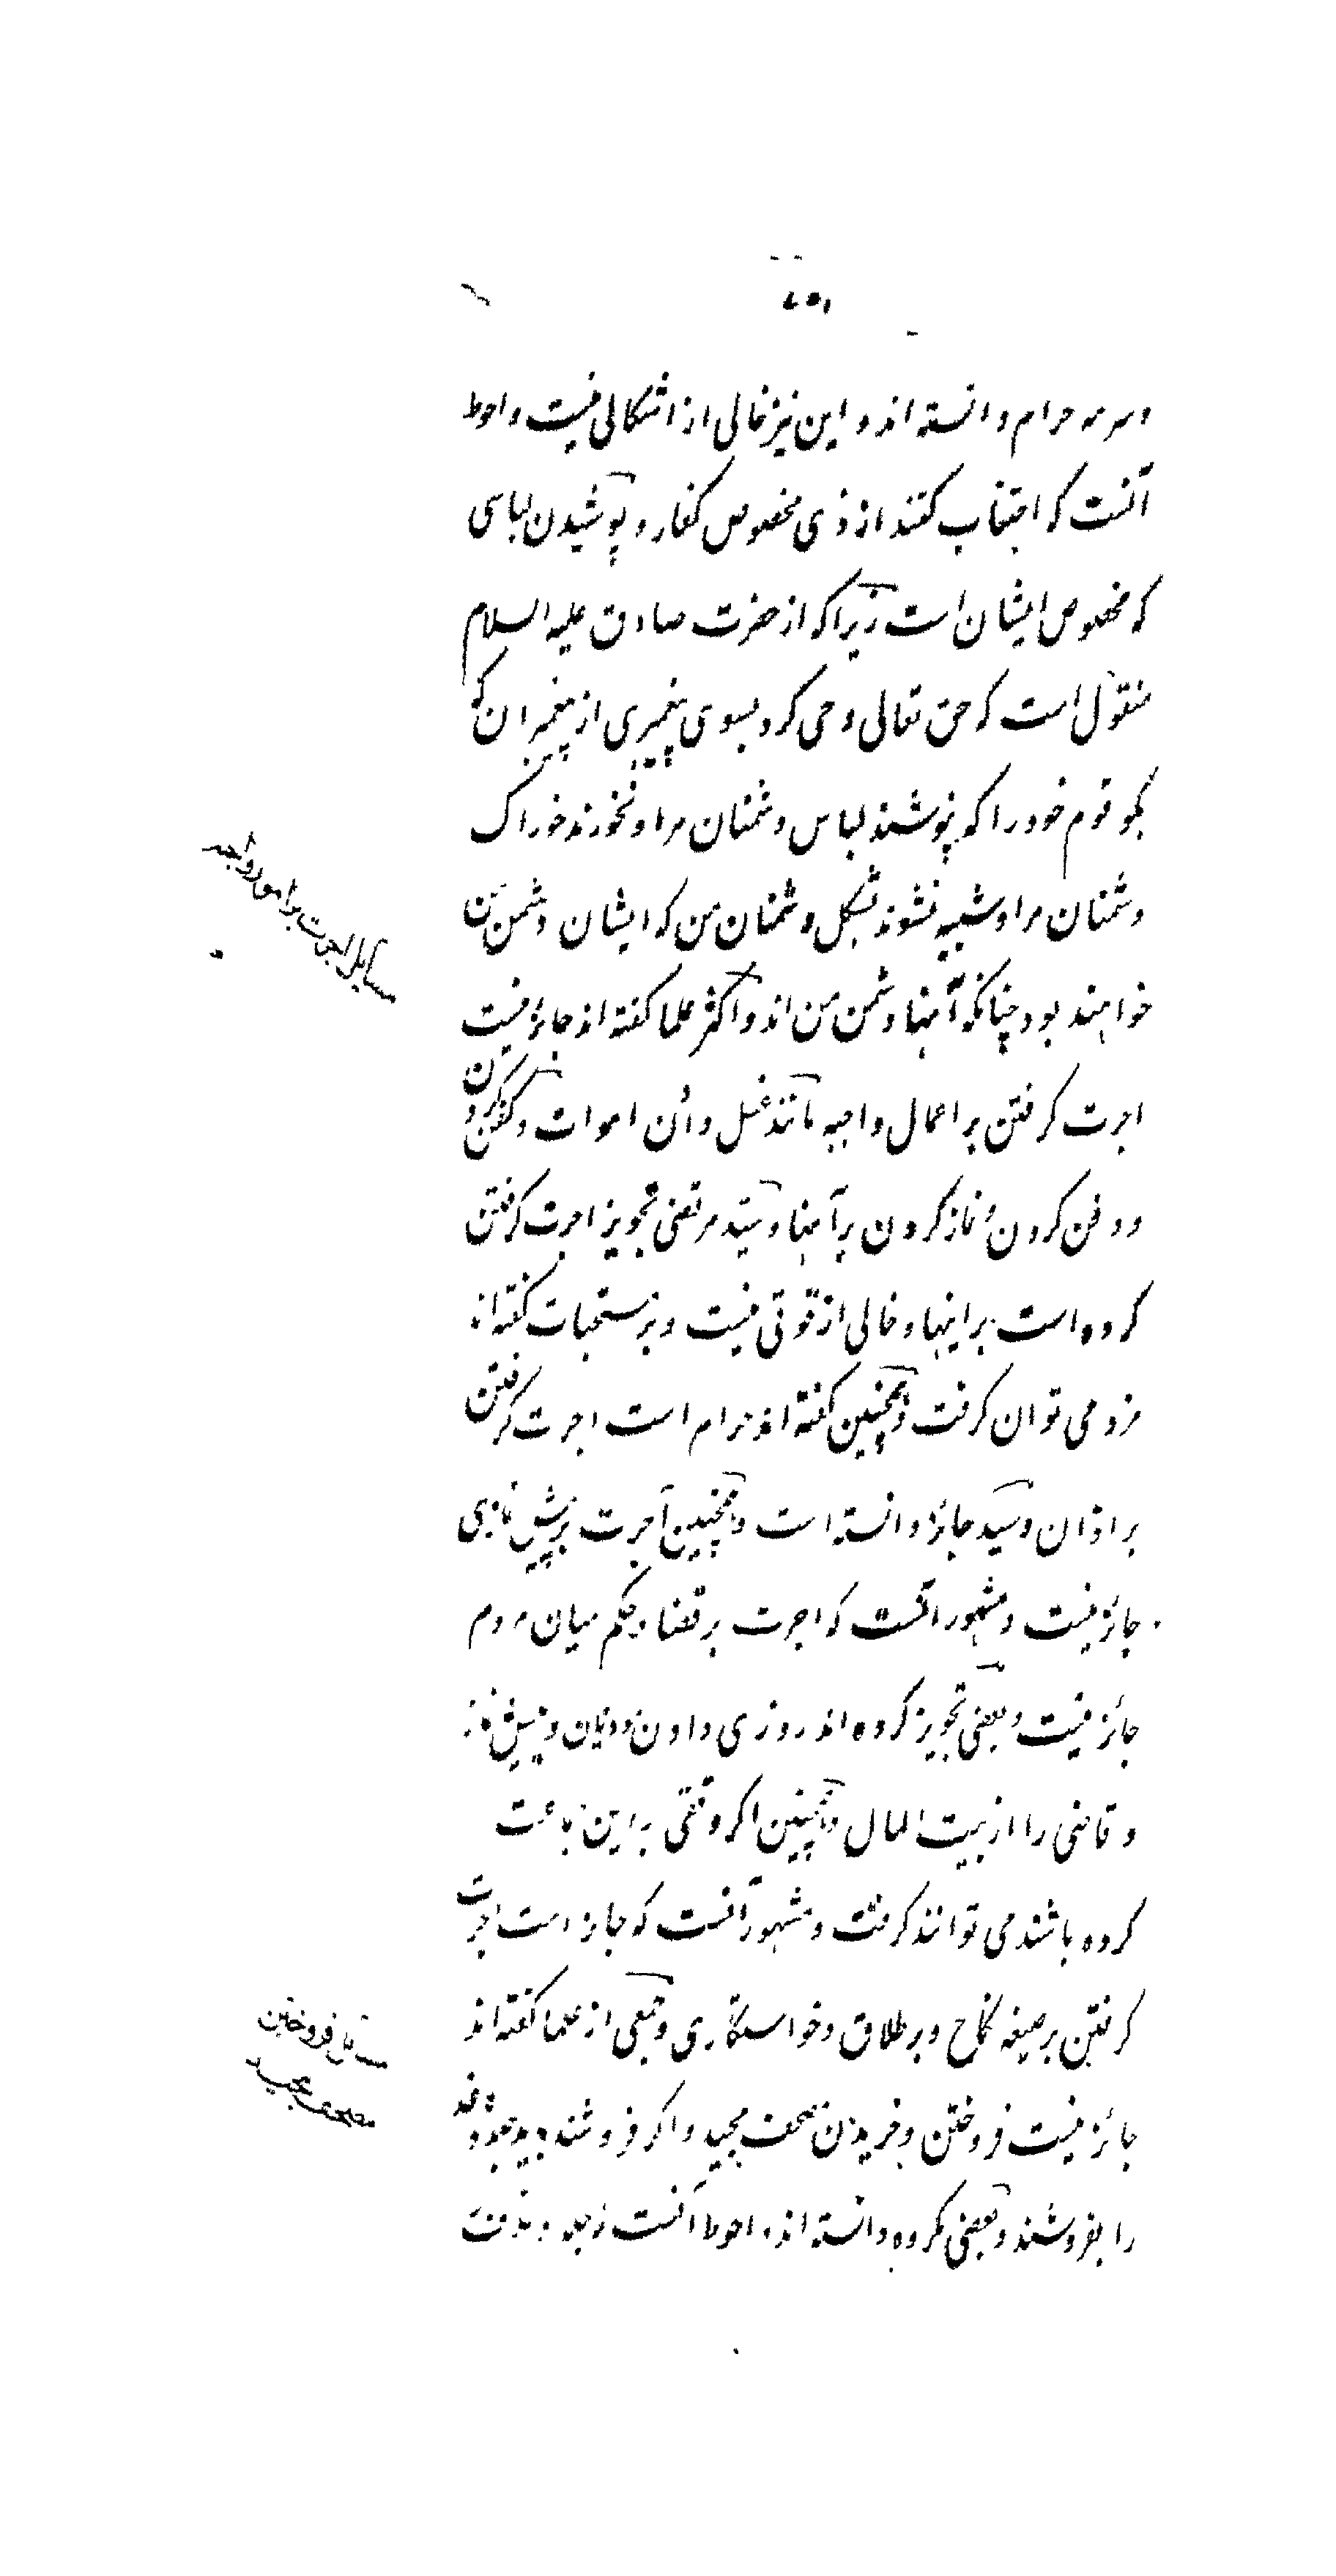 وسرمه حرام دانسته اند و این نیز خالی از اشکالی نیست و احوط
آنست که اجتناب کنند از زی مخصوص کفار و پوشیدن لباسی
که مخصوص ایشان است زیرا که از حضرت صادق علیه السلام
منقول است که حق تعالی وحی کرد بسوی پیغمبری از پیغمبران که
بگو قوم خود را که نپوشند لباس دشمنان مرا و نخورند خوراک
دشمنان مرا و شبیه نشوند بشکل دشمنان من که ایشان دشمن من
خواهند بود چنانکه آنها دشمن من اند و اکثر علما گفته اند جائز نیست
اجرت گرفتن بر اعمال واجبه مانند غسل دادن اموات و کفن کردن
و دفن کردن و نماز کردن بر آنها و سید مرتضی تجویز اجرت گرفتن
کرده است بر اینها و خالی از قوتی نیست و بر مستحبات گفته اند
مزد می توان گرفت و همچنین گفته اند حرام است اجرت گرفتن
بر اذان و سید جائز دانسته است و همچنین اجرت بر پیش نمازی
جائز نیست و مشهور آنست که اجرت بر قضا و حکم میان مردم
جائز نیست و بعضی تجویز کرده اند روزی دادن مؤذنان و پیش نماز
و قاضی را از بیت المال و همچنین اگر وقفی به این جماعت
کرده باشند می توانند گرفت و مشهور آنست که جایز است اجرت
گرفتن بر صیغه نکاح و بر طلاق و خواستگاری و جمعی از علما گفته اند
جائز نیست فروختن و خریدن مصحف مجید و اگر فروشند باید جلد و کاغذ
را بفروشند و بعضی مکروه دانسته اند و احوط آنست
مسایل اجرت بر امور واجبه
مسایل فروختن
مصحف مجید